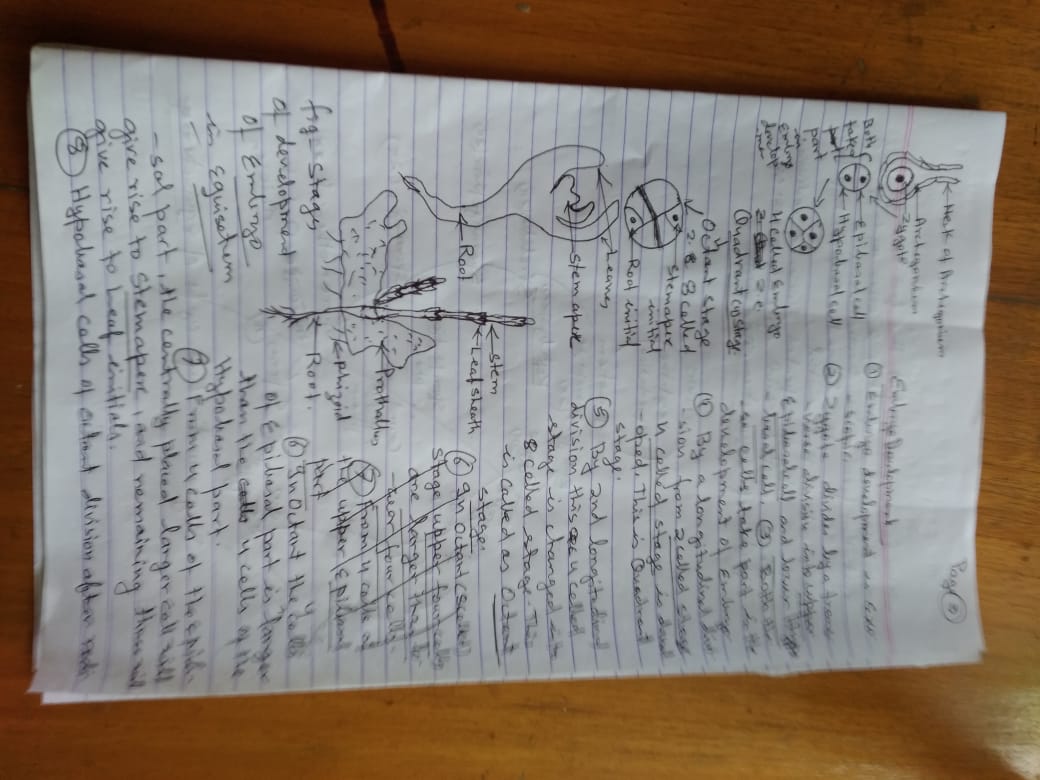 Page (10)
Embryo Development
Neck of Archegonium
Archegonium
Zygote
① Embryo development is Exo
-scopic.
Epibasal cell
Hypobasal cell
Both
take
part
in
Embryo
develop
② Zygote divides by a trans
-verse division into upper
Epibasal cell and lower Hypo
-basal cell. ③ Both the
-se cells take part in the
development of Embryo
4 celled Embryo
Quadrant stage
④ By a longitudinal divi
-sion from 2 celled stage
4 celled stage is devel
-oped. This is Quadrant
stage.
Octant stage
8 celled
Stem apex
initial
Root initial
⑤ By 2nd longitudinal
division this 4 celled
stage is changed into
8 celled stage. This
is called as Octant
stage.
Leaves
Stem apex
Root
Stem
Leaf sheath
Prothallus
Rhizoid
Root.
⑥ In Octant (8 celled)
stage upper four cells
are larger than lo
-wer four cells.
⑦ From 4 cells of
the upper Epibasal
part
⑥ In Octant the 4 cells
of Epibasal part is larger
than the 4 cells of the
Hypobasal part.
fig: Stages
of development
of Embryo
in Equisetum
⑦ From 4 cells of the epiba-
-sal part, the centrally placed larger cell will
give rise to stem apex, and remaining three will
give rise to Leaf initials.
⑧ Hypobasal cells of octant division after